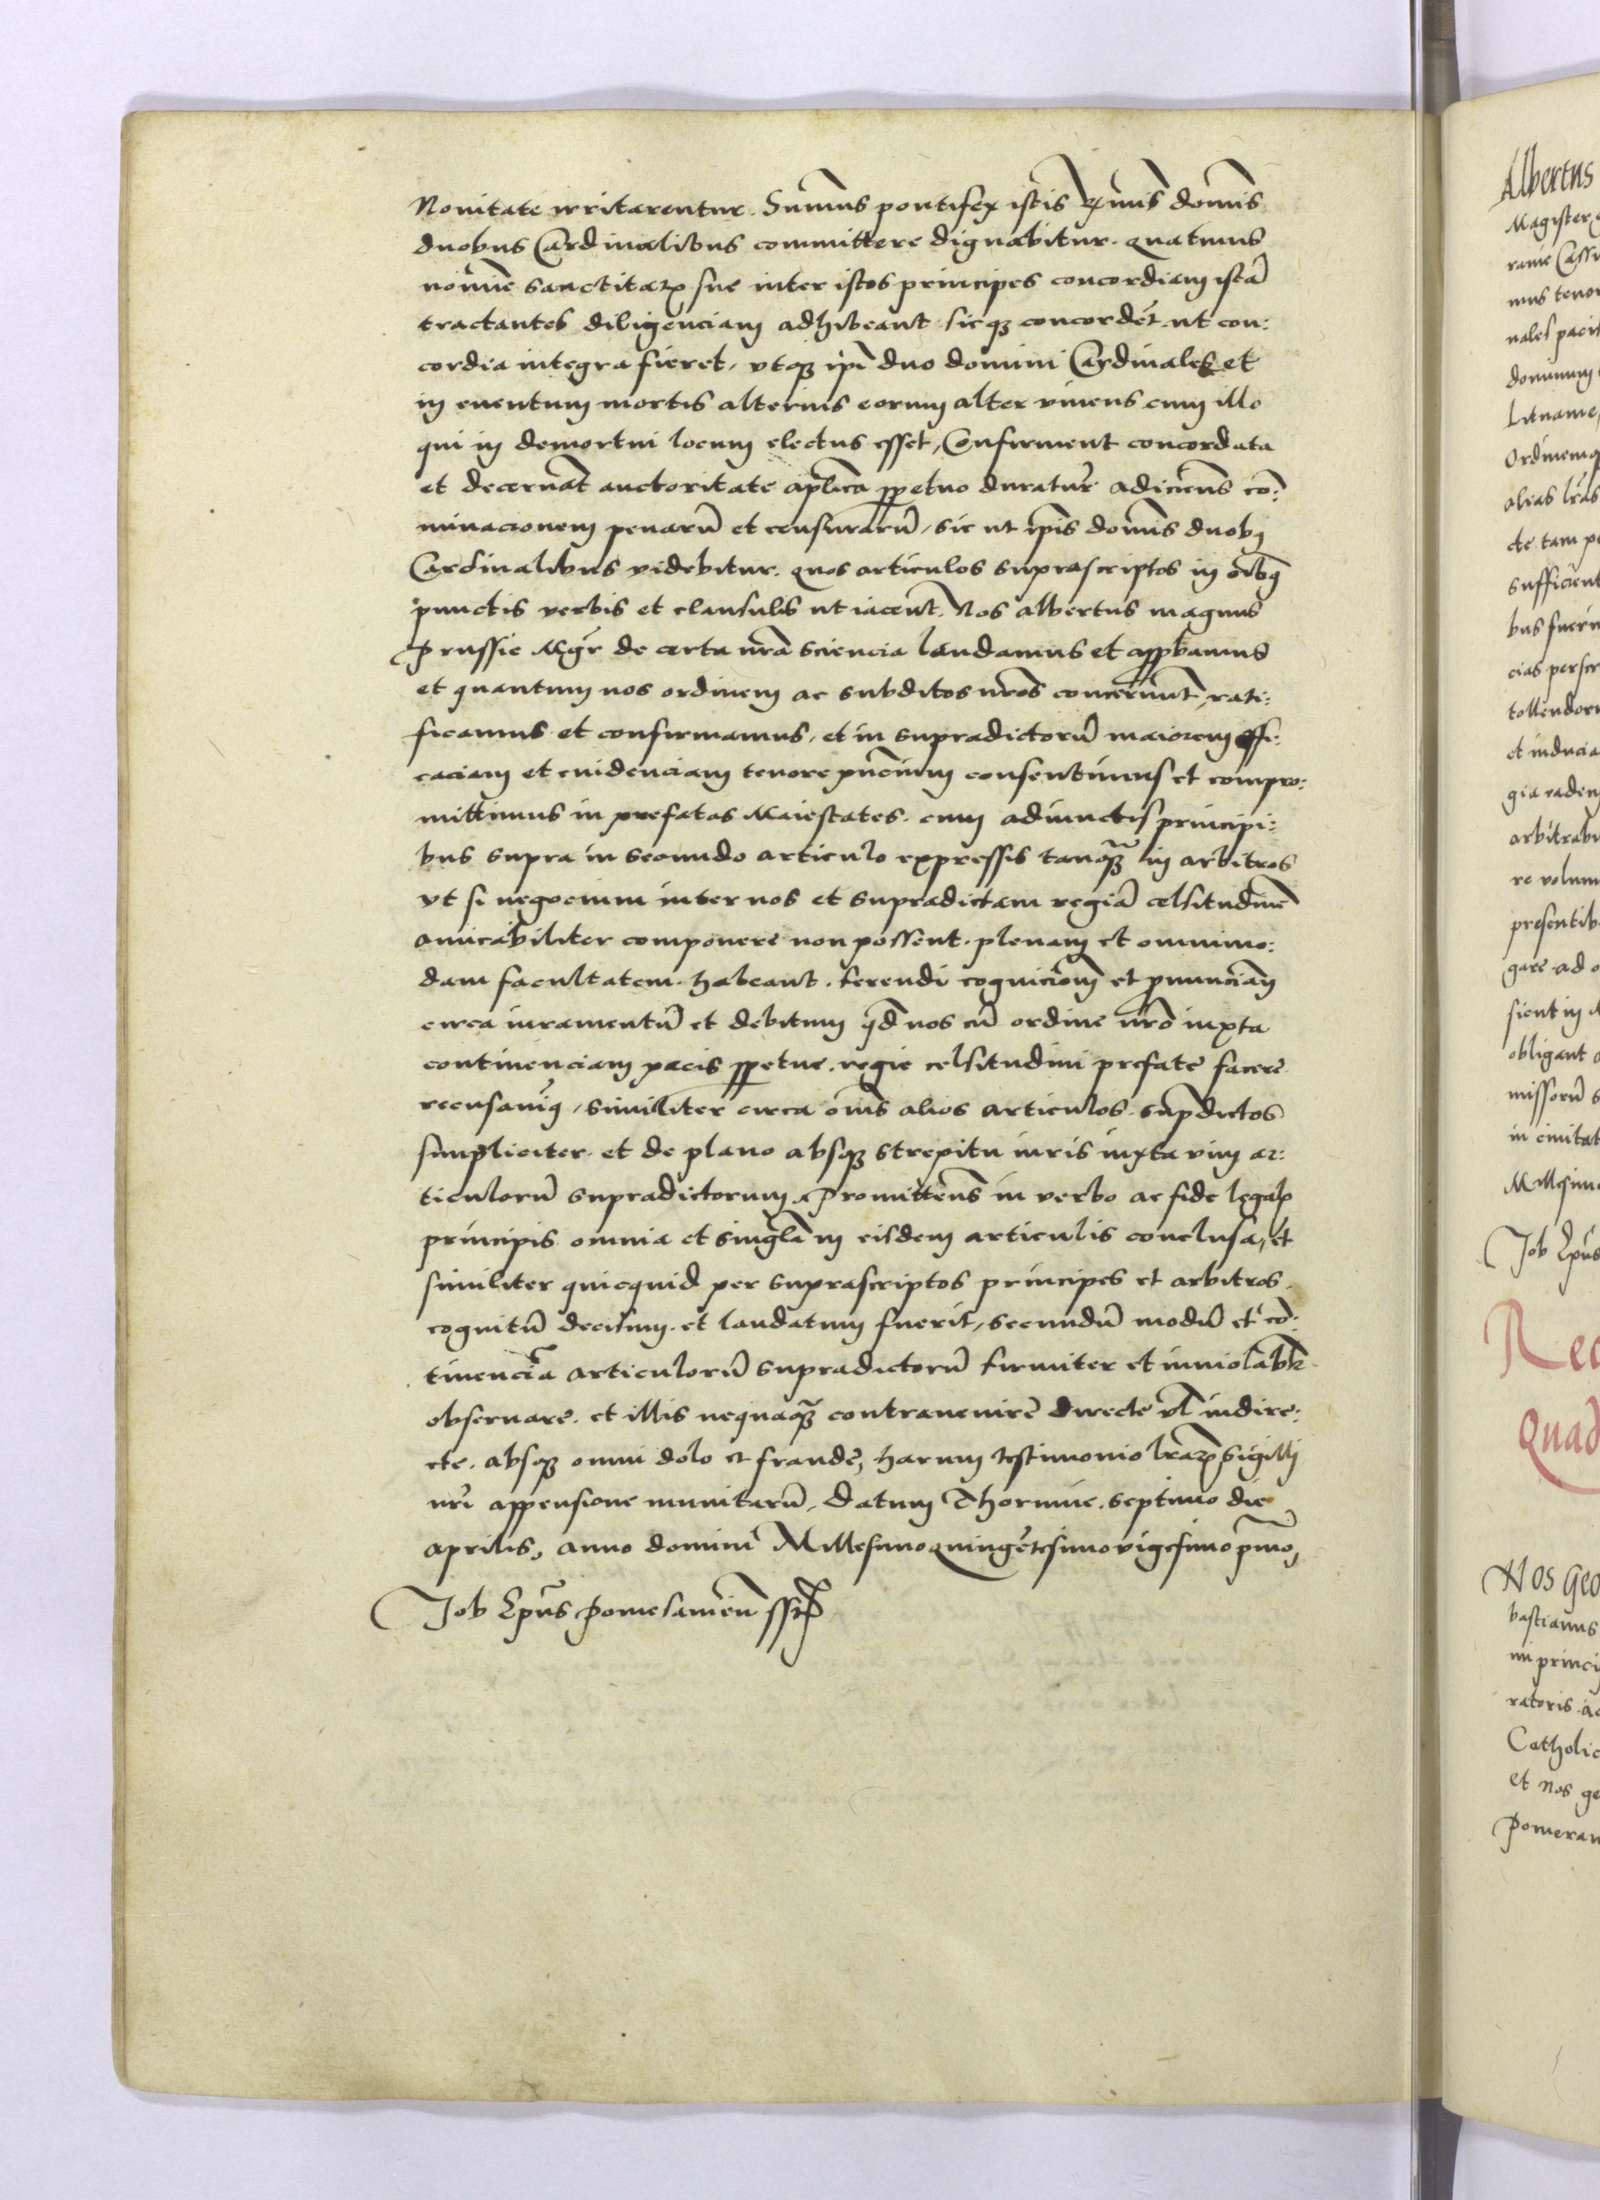 Nouitate irritarentur. Sum̄us pontifex istis Rm̄is dom̄is
duobus Cardinalibus committere dignabitur. quatinus
noīe sanctitatꝭ sue inter istos principes concordiam istā
tractantes diligenciam adhibeant. sicqꝫ concordēt. ut con:
cordia integra fieret, vtqꝫ ip̄i duo domini Cardinales et
in euentum mortis alterius eorum alter viuens cum illo
qui in demortui locum electus esset, Confirment concordata
et decernāt auctoritate aplica ꝑpetuo duratur̄ adiiciens cō:
minacionem penarū et censurarū, sic ut ip̄is dom̄is duobꝫ
Cardinalibus videbitur. quos articulos suprascriptos in oībꝫ
punctis verbis et clausulis ut iacent. Nos albertus magnus
Prussie Mgr̄ de certa nr̄a sciencia laudamus et approbamus
et quantum nos ordinem ac subditos nr̄os concernunt, rati:
ficamus et confirmamus, et in supradictorū maiorem effi:
caciam et euidenciam tenore pn̄cium consentimus et compro:
mittimus in prefatas Maiestates. cum adiunctis principi:
bus supra in secundo articulo expressis tanqꝫ in arbitros
vt si negocium inter nos et supradictam regiā celsitudinē
amicabiliter componere non possent. plenam et omnimo:
dam facultatem habeant. ferendi cognicionē et pnunciaм
circa iuramentū et debitum qd̄ nos cū ordine nr̄o iuxta
continenciam pacis ꝑpetue. regie celsitudini prefate facere
recusauimꝰ, similiter circa om̄s alios articulos supdictos
simpliciter. et de plano absqꝫ strepitu iuris iuxta vim ar:
ticulorū supradictorum Promittens in verbo ac fide legalꝭ
principis omnia et singula in eisdem articulis conclusa, et
similiter quicquid per suprascriptos principes et arbitros
cognitū decisum. et laudatum fuerit, secundū modū et cō:
tinenciā articulorū supradictorū firmiter et inuiolabłr
obseruare. et illis nequaqꝫ contrauenire directe vl̄ indire:
cte. absqꝫ omni dolo et fraude, harum testimonio lr̄arꝭ sigilli
nr̄i appensione munitarū, Datum Thorunie. septimo die
aprilis, anno domini Millesimoquingētesimovigesimo pͥmo,
Job Ep̄us Pomesanien̄ sstp̄
Albertus
Magister
rarie Cassu
mus tenor
nales paci
dominum
Lituanie,
Ordinemq
alias lr̄as
cte tam p
sufficient
bus fueri
cias perscr
tollendor
et inducia
gia eadem
arbitrab
re volum
presentib
gare. ad o
sient in
obligant
missorū s
in ciuitat
Millesimo
Job Ep̄us
Rec
Quad
Nos Geo
bastianus
mi princi
ratoris. ac
Catholic
et Nos ge
Pomeran